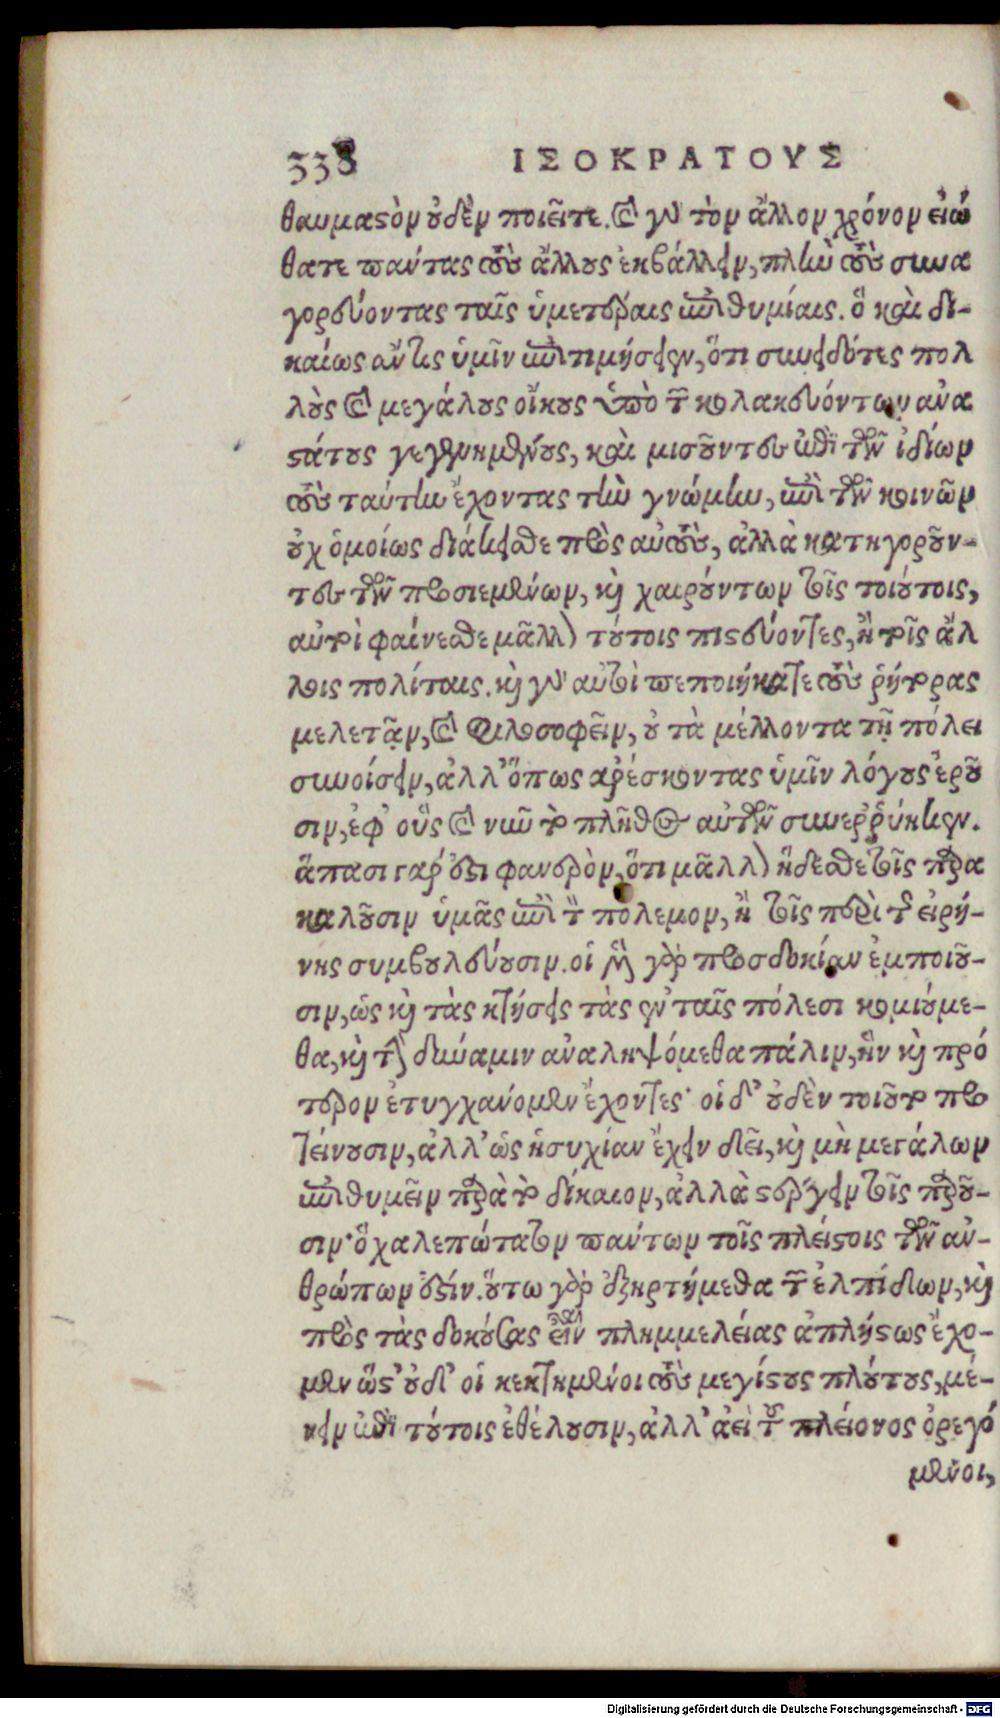 338 ΙΣΟΚΡΑΤΟΥΣ
θαυμαστὸν οὐδὲν ποιεῖτε. καὶ γὰρ τὸν ἄλλον χρόνον εἰώ
θατε πάντας τοὺς ἄλλους ἐκβάλλειν, πλὴν τοὺς συνα
γορεύοντας ταῖς ὑμετέραις ἐπιθυμίαις. ὃ καὶ δι-
καίως ἄν τις ὑμῖν ἐπιτιμήσειεν, ὅτι συνειδότες πολ
λοὺς καὶ μεγάλους οἴκους ὑπὸ τῶν κολακευόντων ἀνα
στάτους γεγενημένους, καὶ μισοῦντες ἐπὶ τῶν ἰδίων
τοὺς ταύτην ἔχοντας τὴν γνώμην, ἐπὶ τῶν κοινῶν
οὐχ ὁμοίως διάκεισθε πρὸς αὐτοὺς, ἀλλὰ κατηγοροῦν-
τες τῶν προσιεμένων, καὶ χαιρόντων τοῖς τοιούτοις,
αὐτοὶ φαίνεσθε μᾶλλον τούτοις πιστεύοντες, ἢ τοῖς ἄλ
λοις πολίταις. καὶ γὰρ αὐτοὶ πεποιήκατε τοὺς ῥήτορας
μελετᾷν, καὶ φιλοσοφεῖν, οὐ τὰ μέλλοντα τῇ πόλει
συνοίσειν, ἀλλ' ὅπως ἀρέσκοντας ὑμῖν λόγους ἐροῦ
σιν, ἐφ' οὓς καὶ νῦν τὸ πλῆθος αὐτῶν συνεῤῥύηκεν.
ἅπασι γάρ ἐστι φανερὸν, ὅτι μᾶλλον ἥδεσθε τοῖς παρα
καλοῦσιν ὑμᾶς ἐπὶ τὸν πόλεμον, ἢ τοῖς περὶ τῆς εἰρή-
νης συμβουλεύουσιν. οἱ μὲν γὰρ προσδοκίαν ἐμποιοῦ-
σιν, ὡς καὶ τὰς κτήσεις τὰς ἐν ταῖς πόλεσι κομιούμε-
θα, καὶ τὴν δύναμιν ἀναληψόμεθα πάλιν, ἣν καὶ πρό
τερον ἐτυγχάνομεν ἔχοντες· οἱ δ' οὐδὲν τοιοῦτο προ
τείνουσιν, ἀλλ' ὡς ἡσυχίαν ἔχειν δεῖ, καὶ μὴ μεγάλων
ἐπιθυμεῖν παρὰ τὸ δίκαιον, ἀλλὰ στέργειν τοῖς παροῦ-
σιν· ὃ χαλεπώτατον πάντων τοῖς πλείστοις τῶν ἀν-
θρώπων ἐστίν. οὕτω γὰρ ἐξηρτήμεθα τῶν ἐλπίδων, καὶ
πρὸς τὰς δοκούσας εἶναι πλημμελείας ἀπλήστως ἔχο-
μεν ὥστ' οὐδ' οἱ κεκτημένοι τοὺς μεγίστους πλούτους, μέ-
νειν ἐπὶ τούτοις ἐθέλουσιν, ἀλλ' ἀεὶ τοῦ πλείονος ὀρεγό
μενοι,
Digitalisierung gefördert durch die Deutsche Forschungsgemeinschaft - DFG